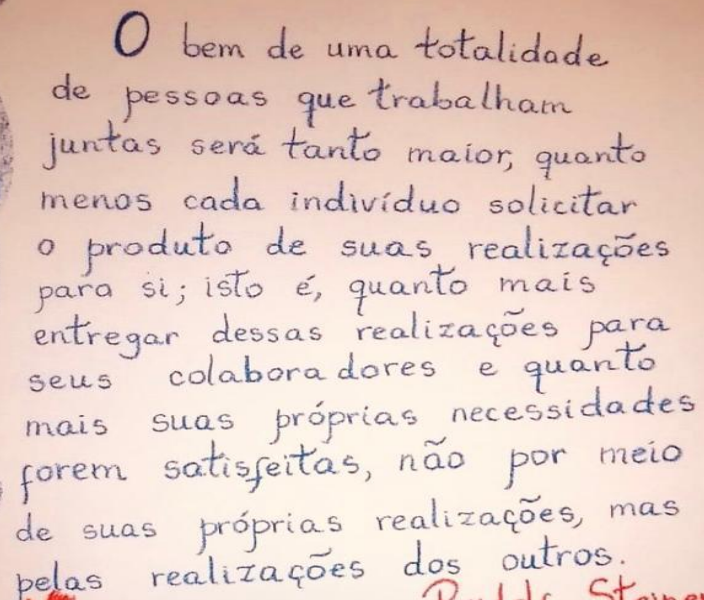 O bem de uma totalidade
de pessoas que trabalham
juntas será tanto maior, quanto
menos cada indivíduo solicitar
o produto de suas realizações
para si; isto é, quanto mais
entregar dessas realizações para
seus colaboradores e quanto
mais suas próprias necessidades
forem satisfeitas, não por meio
de suas próprias realizações, mas
pelas realizações dos outros.